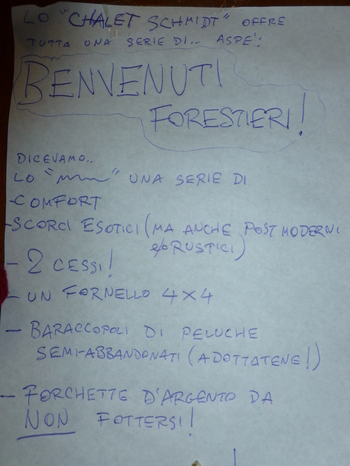 LO "CHALET SCHMIDT" OFFRE
TUTTA UNA SERIE DI... ASPE':
BENVENUTI
FORESTIERI!
DICEVAMO..
LO "~~~" UNA SERIE DI
-COMFORT
-SCORCI ESOTICI (MA ANCHE POST MODERNI
E/O RUSTICI)
- 2 CESSI!
- UN FORNELLO 4X4
- BARACCOPOLI DI PELUCHE
SEMI-ABBANDONATI (ADOTTATENE!)
- FORCHETTE D'ARGENTO DA
NON FOTTERSI!